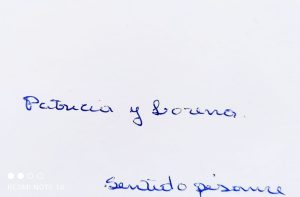 Patricia y Lorena.
Sentido pésame
REDMI NOTE 10